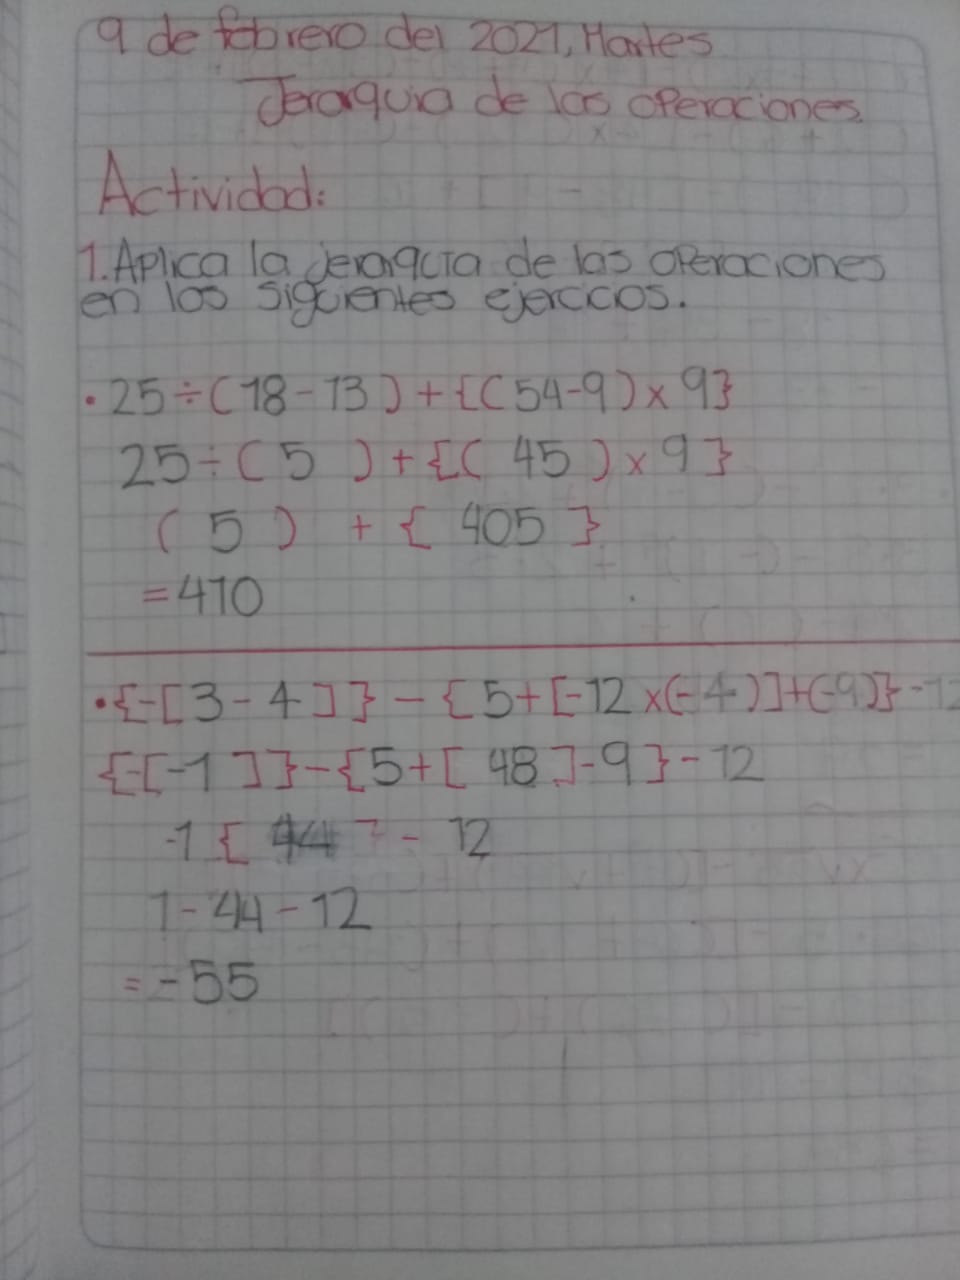 9 de febrero del 2021, Martes
Jerarquia de las operaciones
Actividad:
1. Aplica la jerarquia de las operaciones
en los siguientes ejercicios.
• 25 ÷ ( 18 - 13 ) + { ( 54-9 ) x 9 }
25 ÷ ( 5 ) + { ( 45 ) x 9 }
( 5 ) + { 405 }
= 410
• {-[ 3 - 4 ] } - { 5 + [ -12 x (-4) ] + (-9) } - 12
{-[ -1 ] } - { 5 + [ 48 ] - 9 } - 12
-1 { 44 } - 12
1 - 44 - 12
= - 55